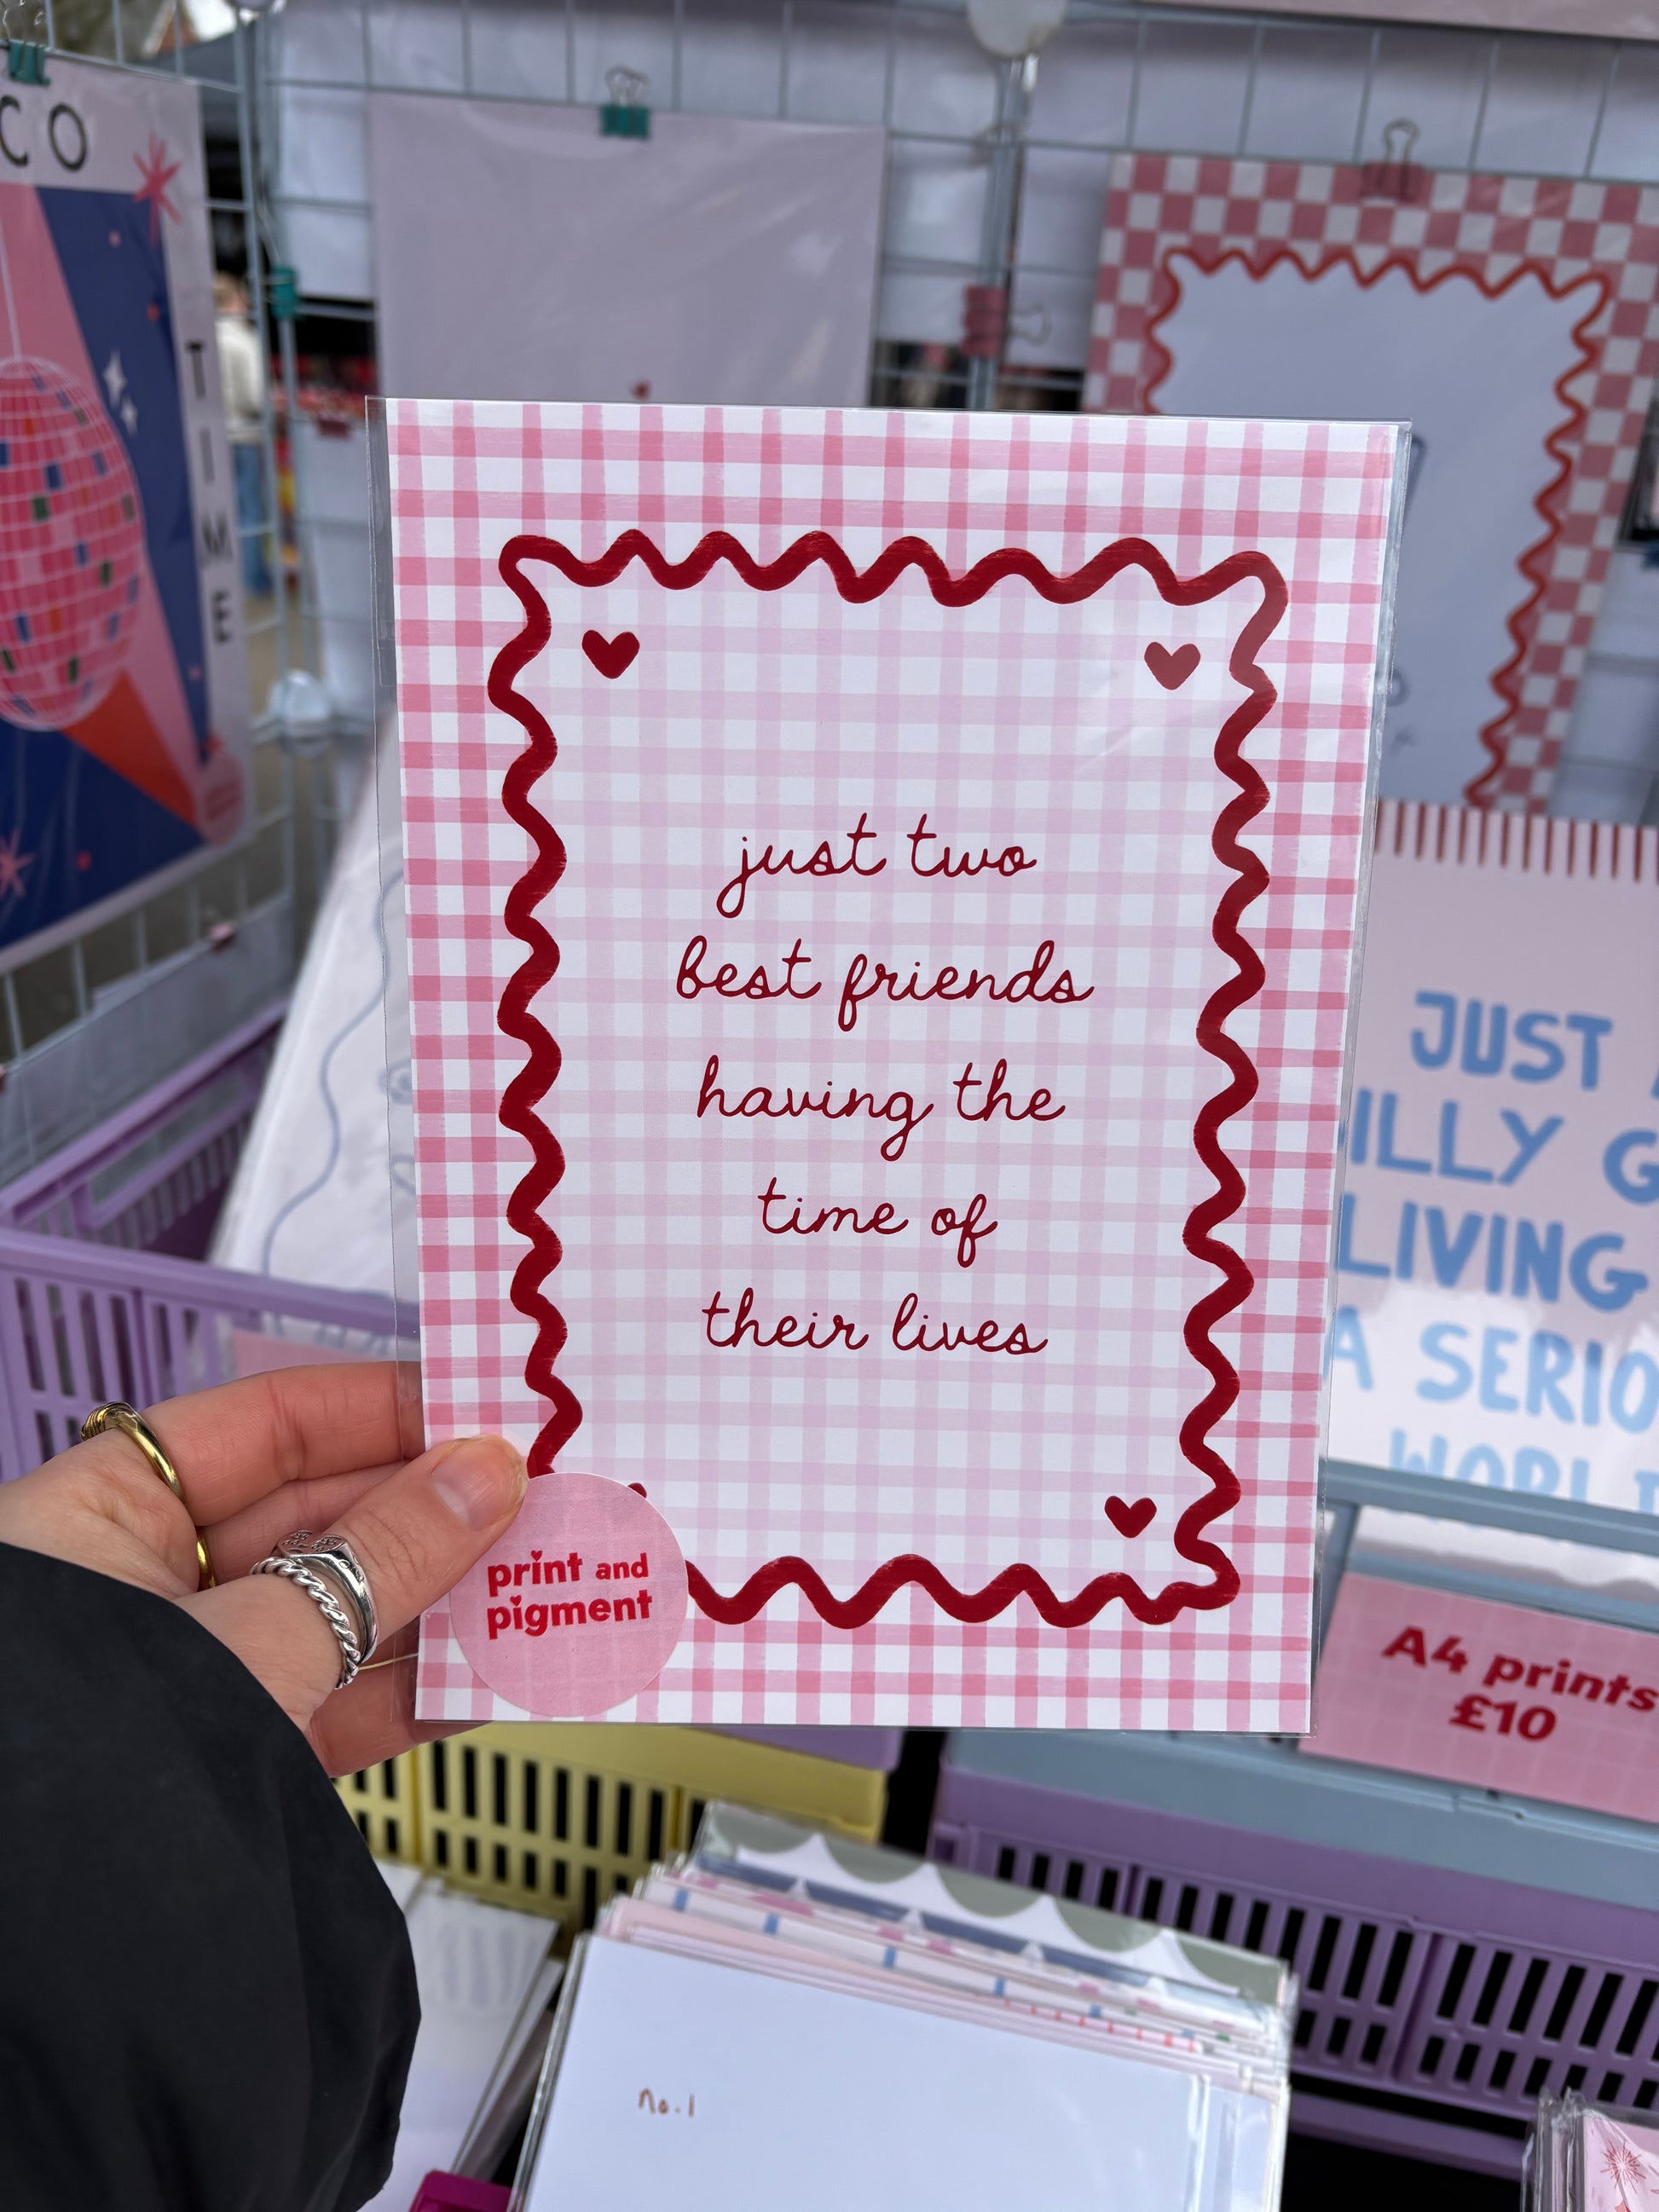 CO
TIME
just two
best friends
having the
time of
their lives
JUST
ILLY G
LIVING
A SERIO
WORL
print and
pigment
A4 prints
£10
no.1